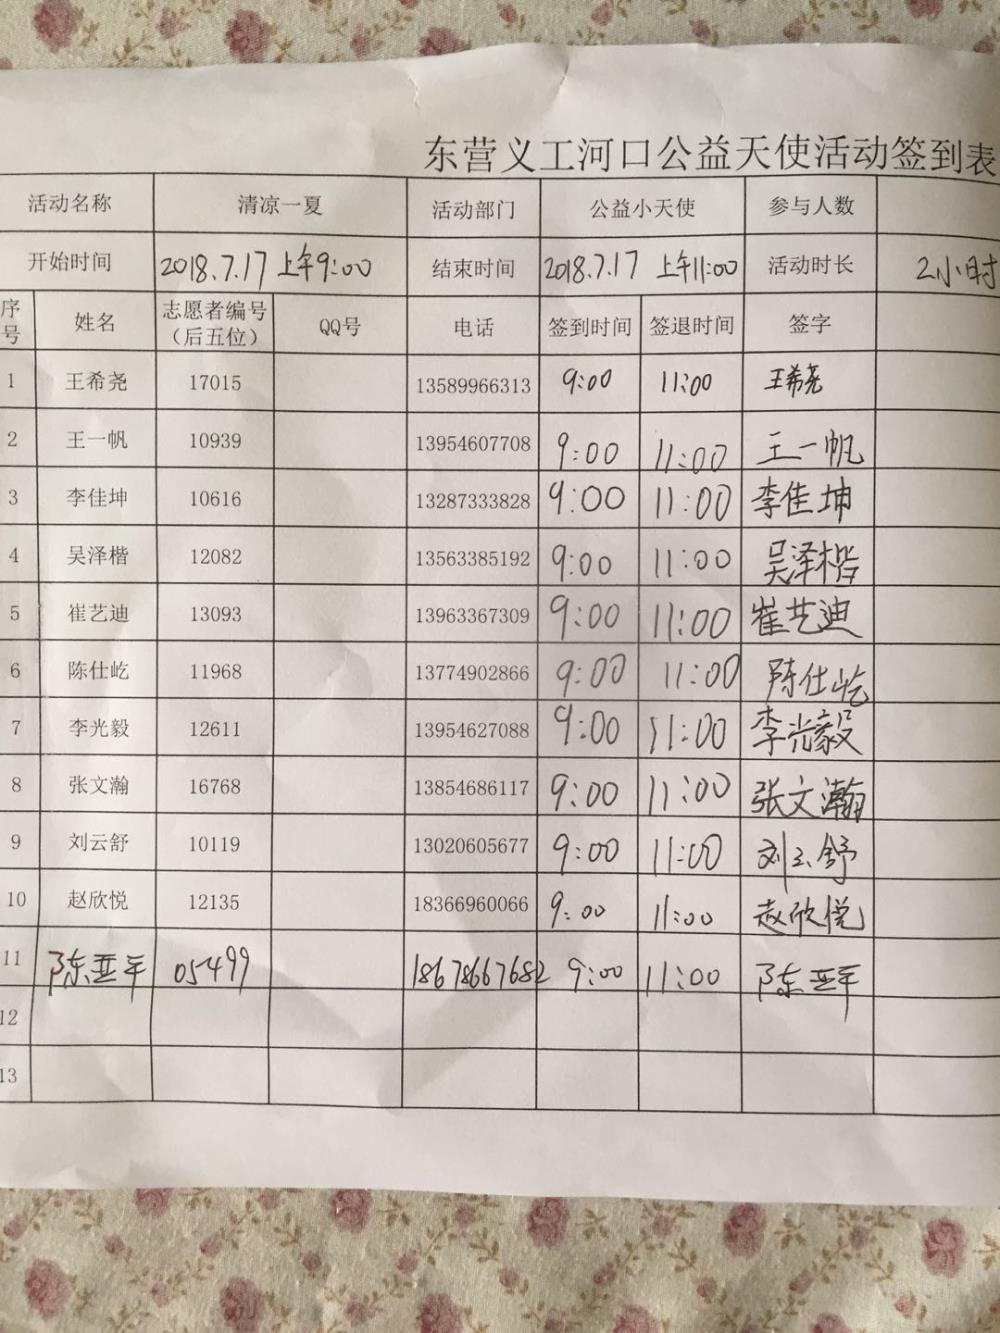 东营义工河口公益天使活动签到表
活动名称 清凉一夏 活动部门 公益小天使 参与人数
开始时间 2018.7.17 上午9:00 结束时间 2018.7.17 上午11:00 活动时长 2小时
序号 姓名 志愿者编号（后五位） QQ号 电话 签到时间 签退时间 签字
1 王希尧 17015 13589966313 9:00 11:00 王希尧
2 王一帆 10939 13954607708 9:00 11:00 王一帆
3 李佳坤 10616 13287333828 9:00 11:00 李佳坤
4 吴泽楷 12082 13563385192 9:00 11:00 吴泽楷
5 崔艺迪 13093 13963367309 9:00 11:00 崔艺迪
6 陈仕屹 11968 13774902866 9:00 11:00 陈仕屹
7 李光毅 12611 13954627088 9:00 11:00 李光毅
8 张文瀚 16768 13854686117 9:00 11:00 张文瀚
9 刘云舒 10119 13020605677 9:00 11:00 刘云舒
10 赵欣悦 12135 18366960066 9:00 11:00 赵欣悦
11 陈亚军 05499 18678667682 9:00 11:00 陈亚军
12
13